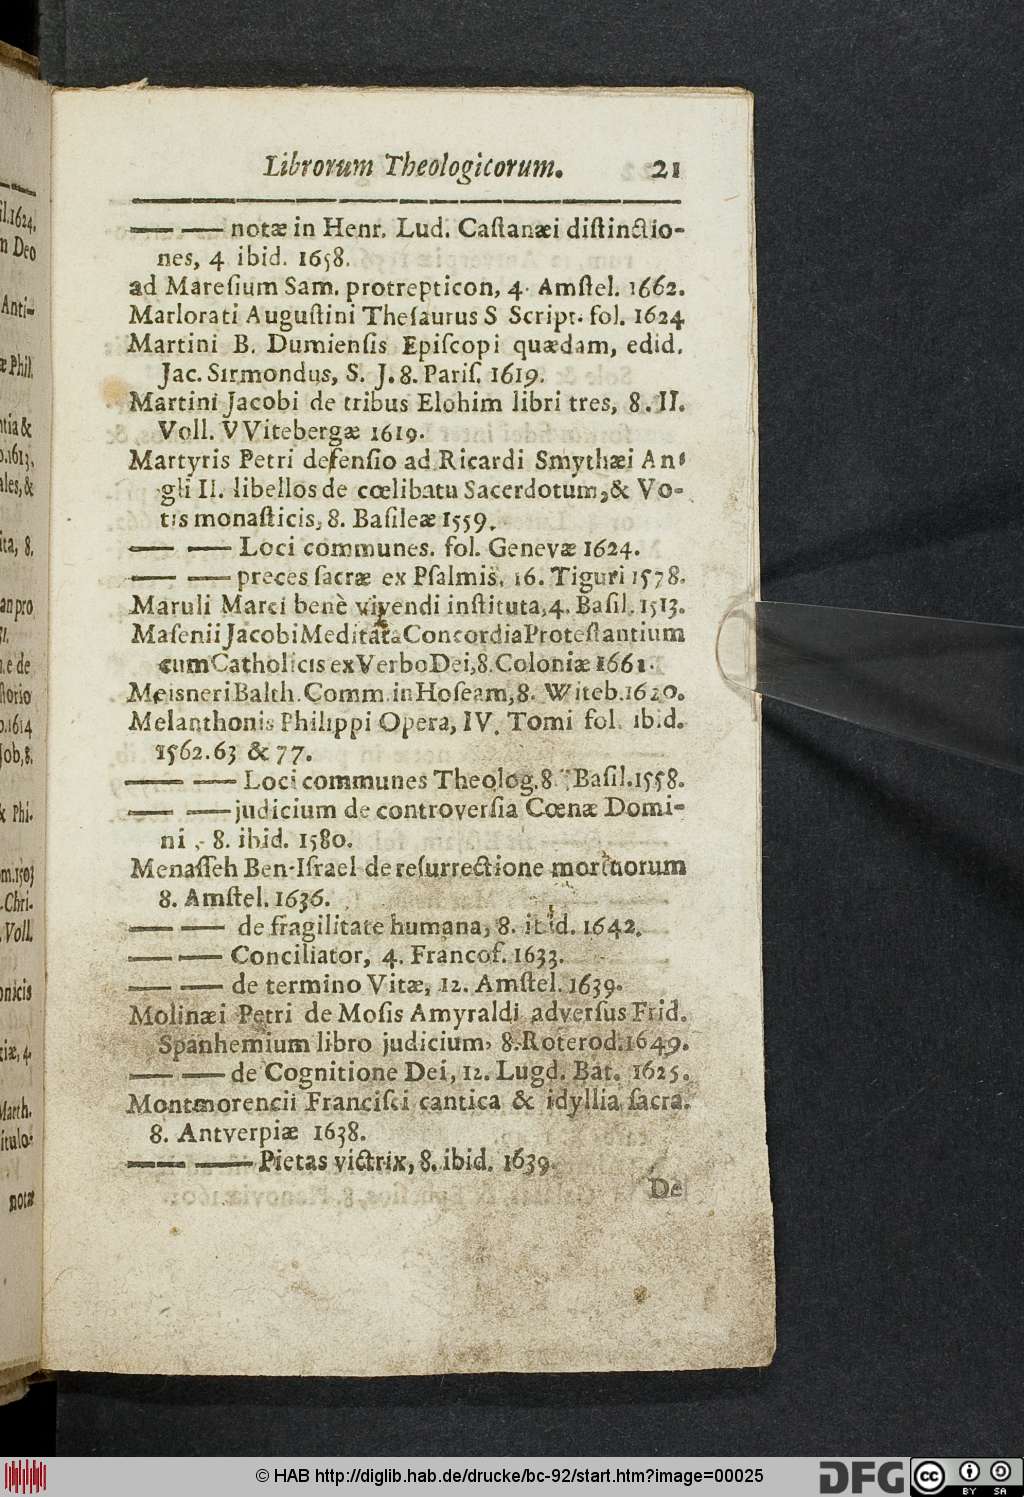 Librorum Theologicorum. 21
—— —— notæ in Henr. Lud. Caſtanæi diſtinctio-
nes, 4 ibid. 1658.
ad Mareſium Sam. protrepticon, 4. Amſtel. 1662.
Marlorati Auguſtini Theſaurus S Script. fol. 1624
Martini B. Dumienſis Epiſcopi quædam, edid.
Jac. Sirmondus, S. J. 8. Pariſ. 1619.
Martini Jacobi de tribus Elohim libri tres, 8. II.
Voll. VVitebergæ 1619.
Martyris Petri defenſio ad Ricardi Smythæi An-
gli II. libellos de cœlibatu Sacerdotum, & Vo-
tis monaſticis, 8. Baſileæ 1559.
—— —— Loci communes. fol. Genevæ 1624.
—— —— preces ſacræ ex Pſalmis, 16. Tiguri 1578.
Maruli Marci benè vivendi inſtituta, 4. Baſil. 1513.
Maſenii Jacobi Meditata Concordia Proteſtantium
cum Catholicis ex Verbo Dei, 8. Coloniæ 1661.
Meisneri Balth. Comm. in Hoſeam, 8. Witeb. 1620.
Melanthonis Philippi Opera, IV. Tomi fol. ibid.
1562. 63 & 77.
—— —— Loci communes Theolog. 8. Baſil. 1558.
—— —— judicium de controverſia Cœnæ Domi-
ni, 8. ibid. 1580.
Menaſſeh Ben-Iſrael de reſurrectione mortuorum
8. Amſtel. 1636.
—— —— de fragilitate humana, 8. ibid. 1642.
—— —— Conciliator, 4. Francof. 1633.
—— —— de termino Vitæ, 12. Amſtel. 1639.
Molinæi Petri de Moſis Amyraldi adverſus Frid.
Spanhemium libro judicium, 8. Roterod. 1649.
—— —— de Cognitione Dei, 12. Lugd. Bat. 1625.
Montmorencii Franciſci cantica & idyllia ſacra.
8. Antverpiæ 1638.
—— —— Pietas victrix, 8. ibid. 1639.
De
© HAB http://diglib.hab.de/drucke/bc-92/start.htm?image=00025
DFG
cc BY SA